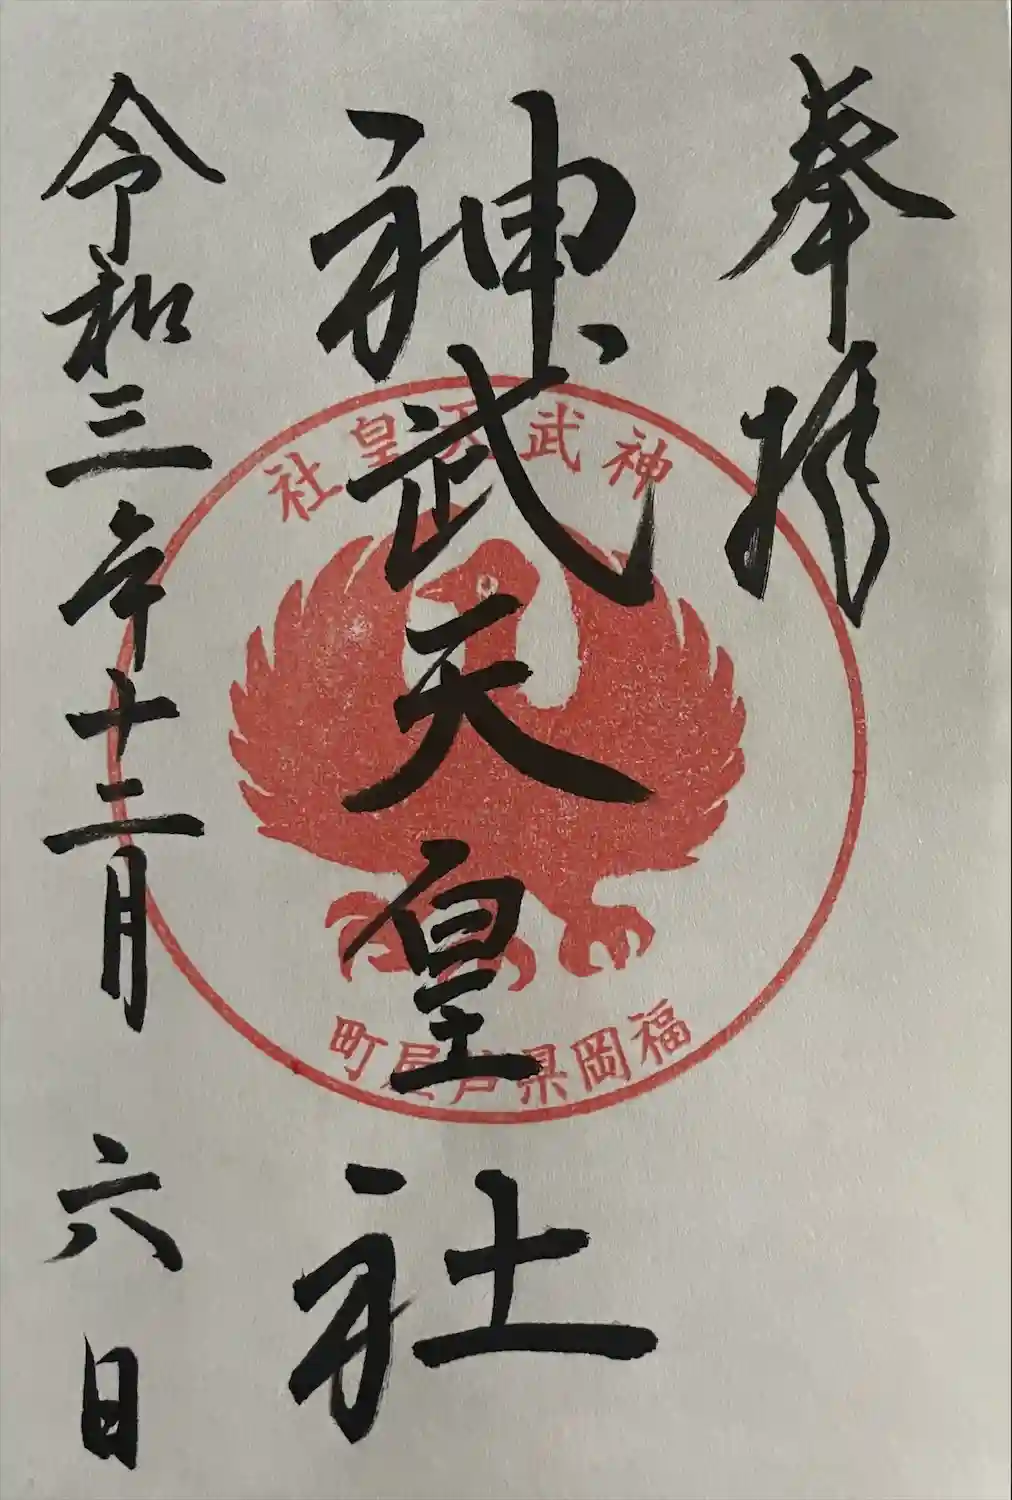 奉拝
神武天皇社
令和三年十二月六日
神武天皇社
福岡県芦屋町